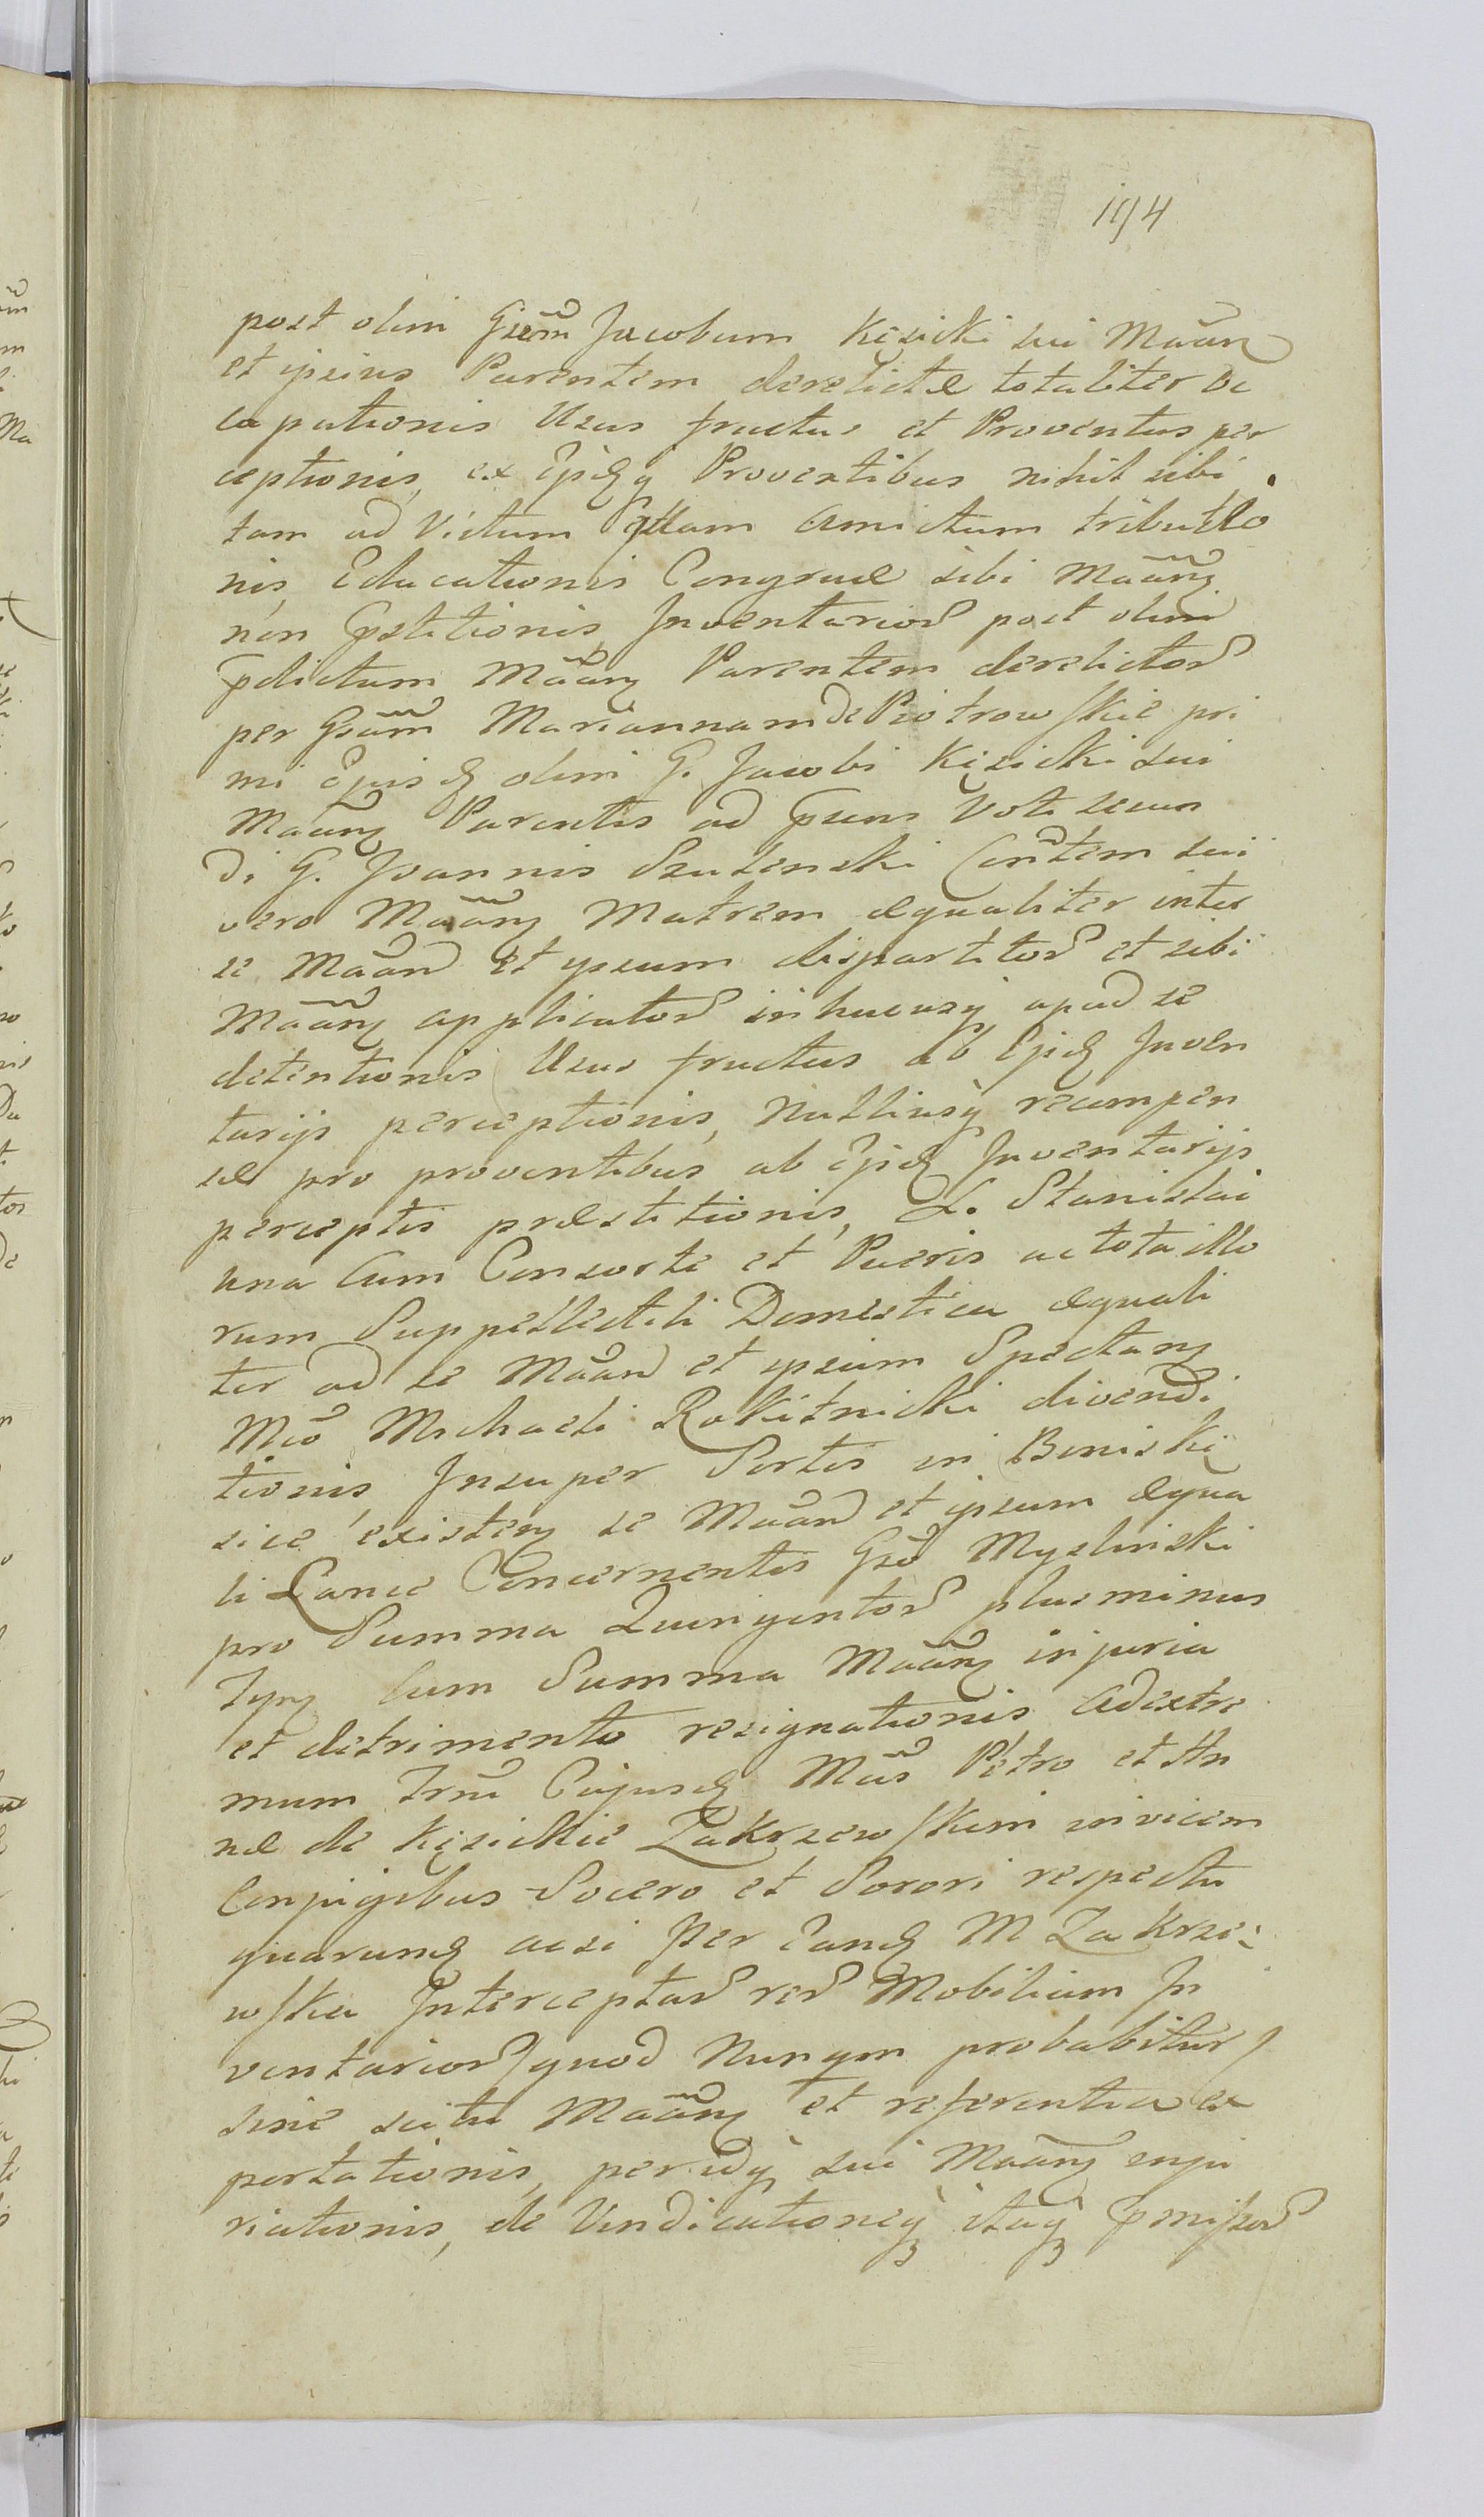 194
post olim Gsem Jacobum Kęsicki sui Maan
et ipsius Parentem derelictæ totaliter oc
cupationis Usus fructus et Proventus per
ceptionis, ex Ejsdq Proventibus nihil sibi
tam ad Victum qtlam Amictum tributio
nis, Educationis Congruæ sibi Maang
non pstitionis, Inventarior post olim
pdictum Maang Parentem derelictor
per Gsam Mariannam de Piotrowskie pri
mi Ejusd olim G. Jacobi Kęsicki sui
Maang Parentis ad psens Voti secun
di G. Joannis Szulenski Contem sui
vero Maang Matrem æqualiter inter
se Maan et ipsum dispartitor et sibi
Maang applicator inhucusq apud se
detentionis Usus fructus ab Ejsd Inven
tarijs perceptionis, Nulliusq recompen
sæ pro proventibus ab Ejsd Inventarijs
perceptis præstitionis, L. Stanislai
una Cum Consorte et Pueris ac tota illo
rum Suppellectili Domestica æquali
ter ad se Maan et ipsum Spectang
Mco Michaeli Rokitnicki divendi
tionis, Insuper Sortis in Boniski
sice existeng se Maan et ipsum æqua
li Lance Concernentis Gso Myslinski
pro Summa Quingentor plus minus
Tynf Cum Summa Maang injuria
et detrimento resignationis, Adextre
mum Trni Cujusd Mcis Petro et An
næ de Kęsickie Zakrzewskim invicem
Conjugibus Socero et Sorori respectu
quarumd acsi per Eand M Zakrze
wska Interceptar rer Mobilium In
ventarior /quod Nunqm probabitur/
sine scitu Maang et referentia ex
portationis, per idq sui Maang inju
riationis, de Vindicationeq itaq pmissor